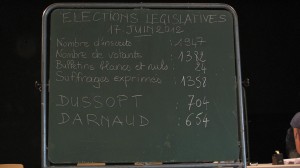 ELECTIONS LEGISLATIVES
17 JUIN 2012
Nombre d'inscrits : 1947
Nombre de votants : 1382
Bulletins blancs et nuls : 24
Suffrages exprimés : 1358
DUSSOPT : 704
DARNAUD : 654